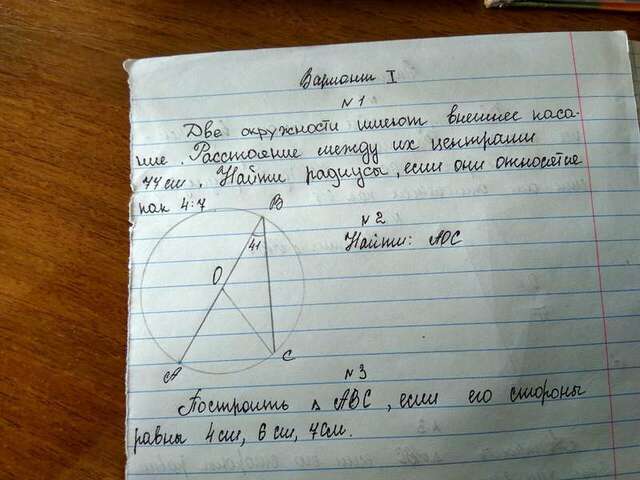 Вариант I
№1
Две окружности имеют внешнее каса-
ние. Расстояние между их центрами
44 см. Найти радиусы, если они относятся
как 4:7
B
№2
41
Найти: AOC
O
A
C
№3
Построить △ ABC, если его стороны
равны 4 см, 6 см, 7 см.